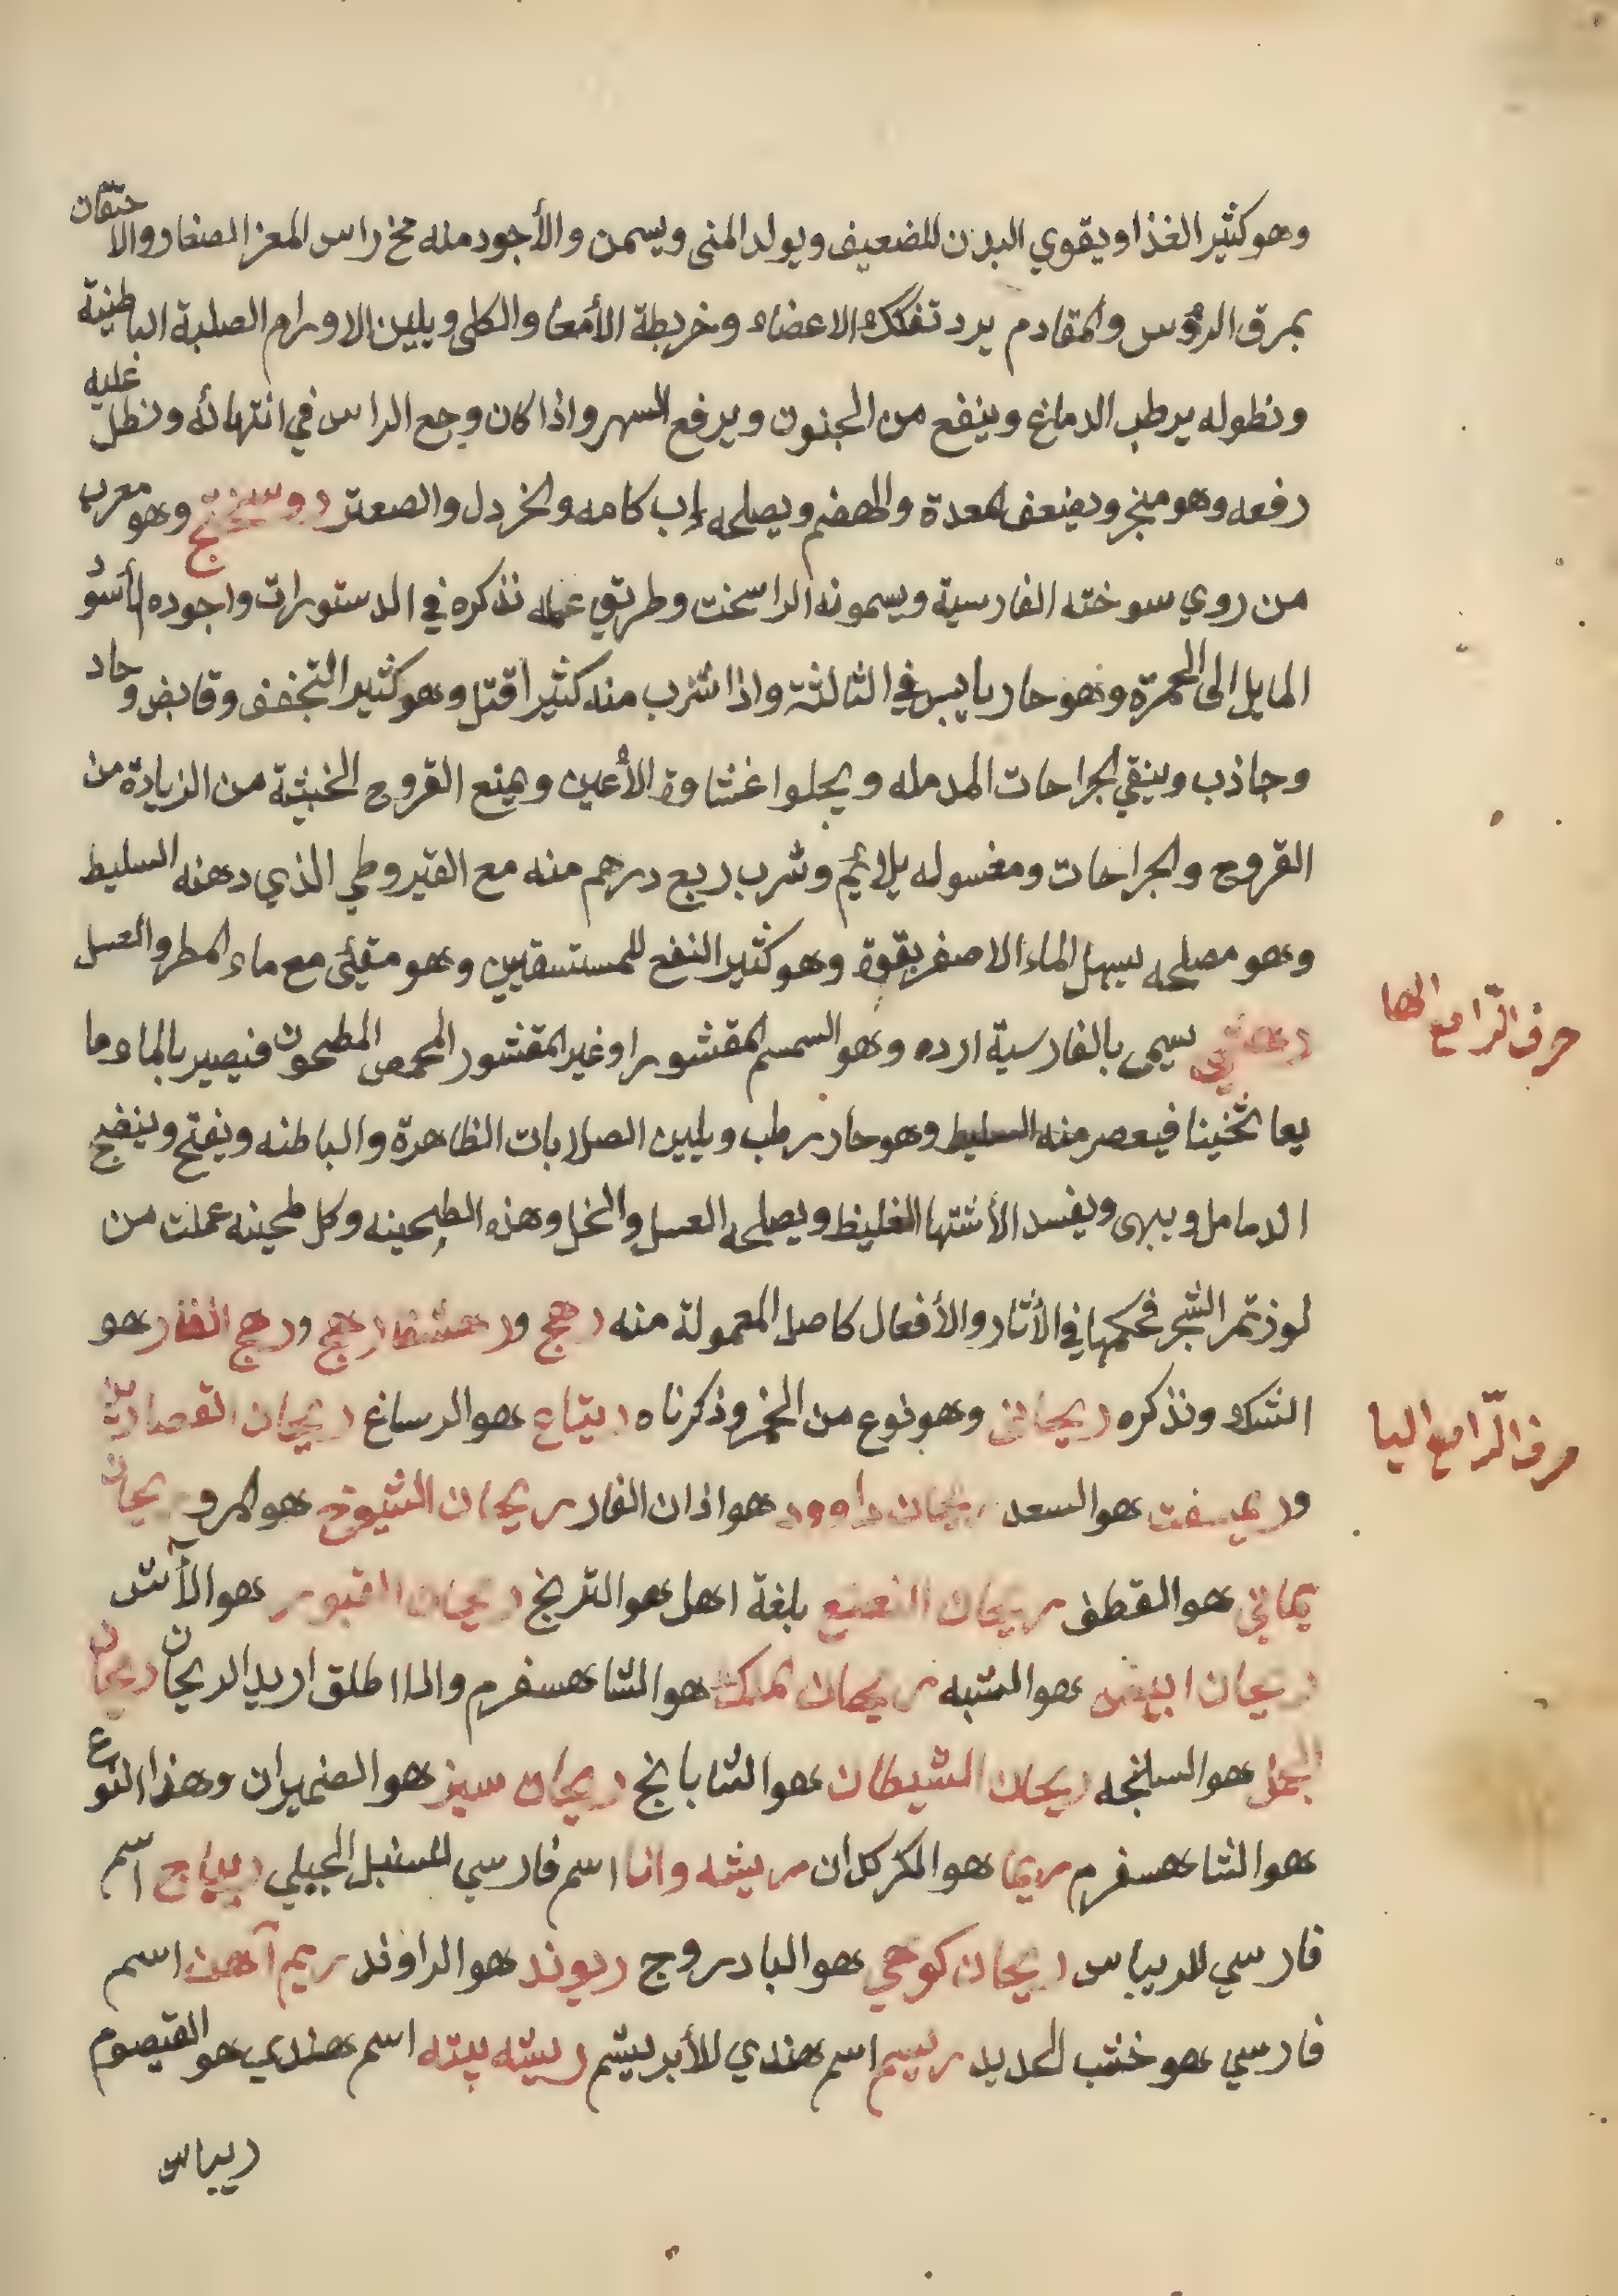 وهو كثير الغذا ويقوي البدن للضعيف ويولد المنى ويسمن والأجود منه مخ راس المعز الصغار والاحتقان
بمرق الرؤس والمقادم يرد تفكك الاعضاء وخريطة الأمعا والكلى ويلين الاورام الصلبة الباطنية
ونطوله يرطب الدماغ وينفع من الجنون ويرفع السهر واذا كان وجع الراس في انتهائه ونطل عليه
رفعه وهو مبخر ويضعف المعدة والهضم ويصلحه إب كامه والخردل والصعتر روسختج وهو معرب
من روي سوخته الفارسية ويسمونه الراسخت وطريق عمله نذكره في الدستورات واجوده الأسود
المايل الى الحمرة وهو حار يابس في الثالثة واذا شرب منه كثيرا قتل وهو كثير التجفف وقابض وحاد
وجاذب وينقي الجراحات المدمله ويجلوا غشاوة الأعين ويمنع القروح الخبيثة من الزيادة من
القروح والجراحات ومغسوله يلائم وشرب ربع درهم منه مع القيروطي الذي دهنه السليط
وهو مصلحه يسهل الماء الاصفر بقوة وهو كثير النفع للمستسقيين وهو مقيئ مع ماء المطر والعسل
حرف الرا مع الها
رهشي سيمى بالفارسية ارده وهو السمسم المقشور او غير المقشور المحمص المطحون فيصير بالماء وما
يعا ثخينا فيعصر منه السليط وهو حار رطب ويلين الصلابات الظاهرة والباطنه ويفتح وينضج
الدمامل ويبهى ويفسد الأشتها الغليظ ويصلحه العسل والخل وهذه الطحينه وكل طحينه عملت من
لوز ثمر الشجر فحكمها في الأثار والأفعال كاصل المعمولة منه رهج ورهشفار هج ورهج الفار هو
الشك ونذكره ريحاني وهو نوع من الخمر وذكرناه ريتاع هو الرساغ ريحان القصارين
حرف الرا مع اليا
وريسفت هو السعد ريحان داوود هو اذان الفار ريحان الشيوخ هو المرو ريحان
يماني هو القطف ريحان النعنع بلغة اهل هو الترنج ريحان القبور هو الآس
ريحان ابيض هو الشبه ريحان الملك هو الشاهسفرم والا اطلق اريد الريحان ريحان
الجمل هو السلنجه ريحان الشيطان هو الشابابخ ريحان سبز هو الضميران وهذا النوع
هو الشاهسفرم ريما هو الكركدان ريشه وانا اسم فارسي للسنبل الجبلي ريباج اسم
فارسي للريباس ريحان كوهي هو البادروج ريوند هو الراوند ريم آهن اسم
فارسي هو خبث الحديد ريسم اسم هندي للأبريشم ريشه پيته اسم هندي هو القيصوم
ريباس